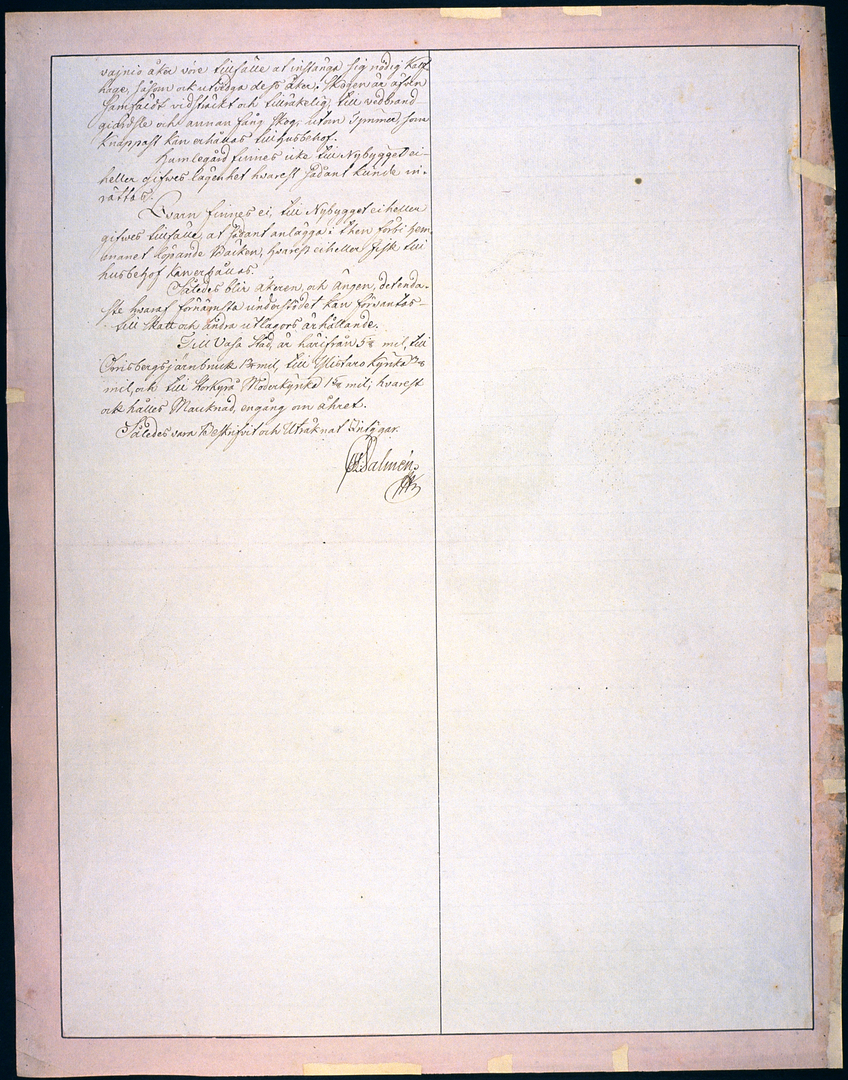 vainio åker vore tillfälle at instänga sig nödig Kalf
hage, såsom ock utvidga dess åker. Skogen är af den
samfäldt vidsträckt och tillräkelig, till vedbrand
giärdsle och annan fång skog, utom Tymmer, som
knappast kan erhållas till husbehof.
Humlegård finnes icke till Nybygget ei
heller gifwes lägenhet hwarest sådant kunde in-
rättas.
Qvarn finnes ei, till Nybygget ei heller
gifwes tillfälle, at sådant anlägga i then förbi Hem-
manet löpande Bäcken, hwarest ei heller fisk till
husbehof kan erhållas.
Således blir åkeren, och ängen, det enda-
ste hwaraf förnämsta understödet kan förväntas
till skatt och andra utlagors ärhållande.
Till Vasa Stad, är härifrån 5 mil, till
Orrisbergs järnbruk mil, till Ylistaro Kyrka
mil, och till Storkyro Moderkyrka mil; hvarest
ock hålles Marcknad, engång om åhret.
Således vara Beskrifvit och Uträknat Intygar.
Salmén